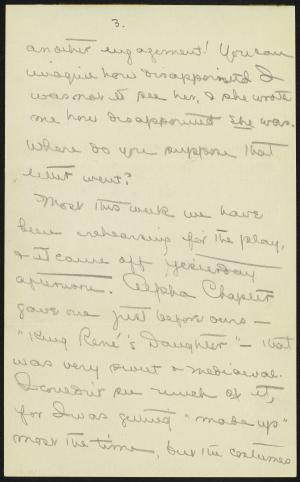 3.
another engagement! You can
imagine how disappointed I
was not to see her, & she wrote
me how disappointed she was.
Where do you suppose that
letter went?
Most this week we have
been rehearsing for the play,
& it came off yesterday
afternoon. Alpha Chapter
gave one just before ours –
"King René's Daughter" – that
was very sweet & mediaeval.
I couldn't see much of it,
for I was getting "made up"
most the time, but the costumes